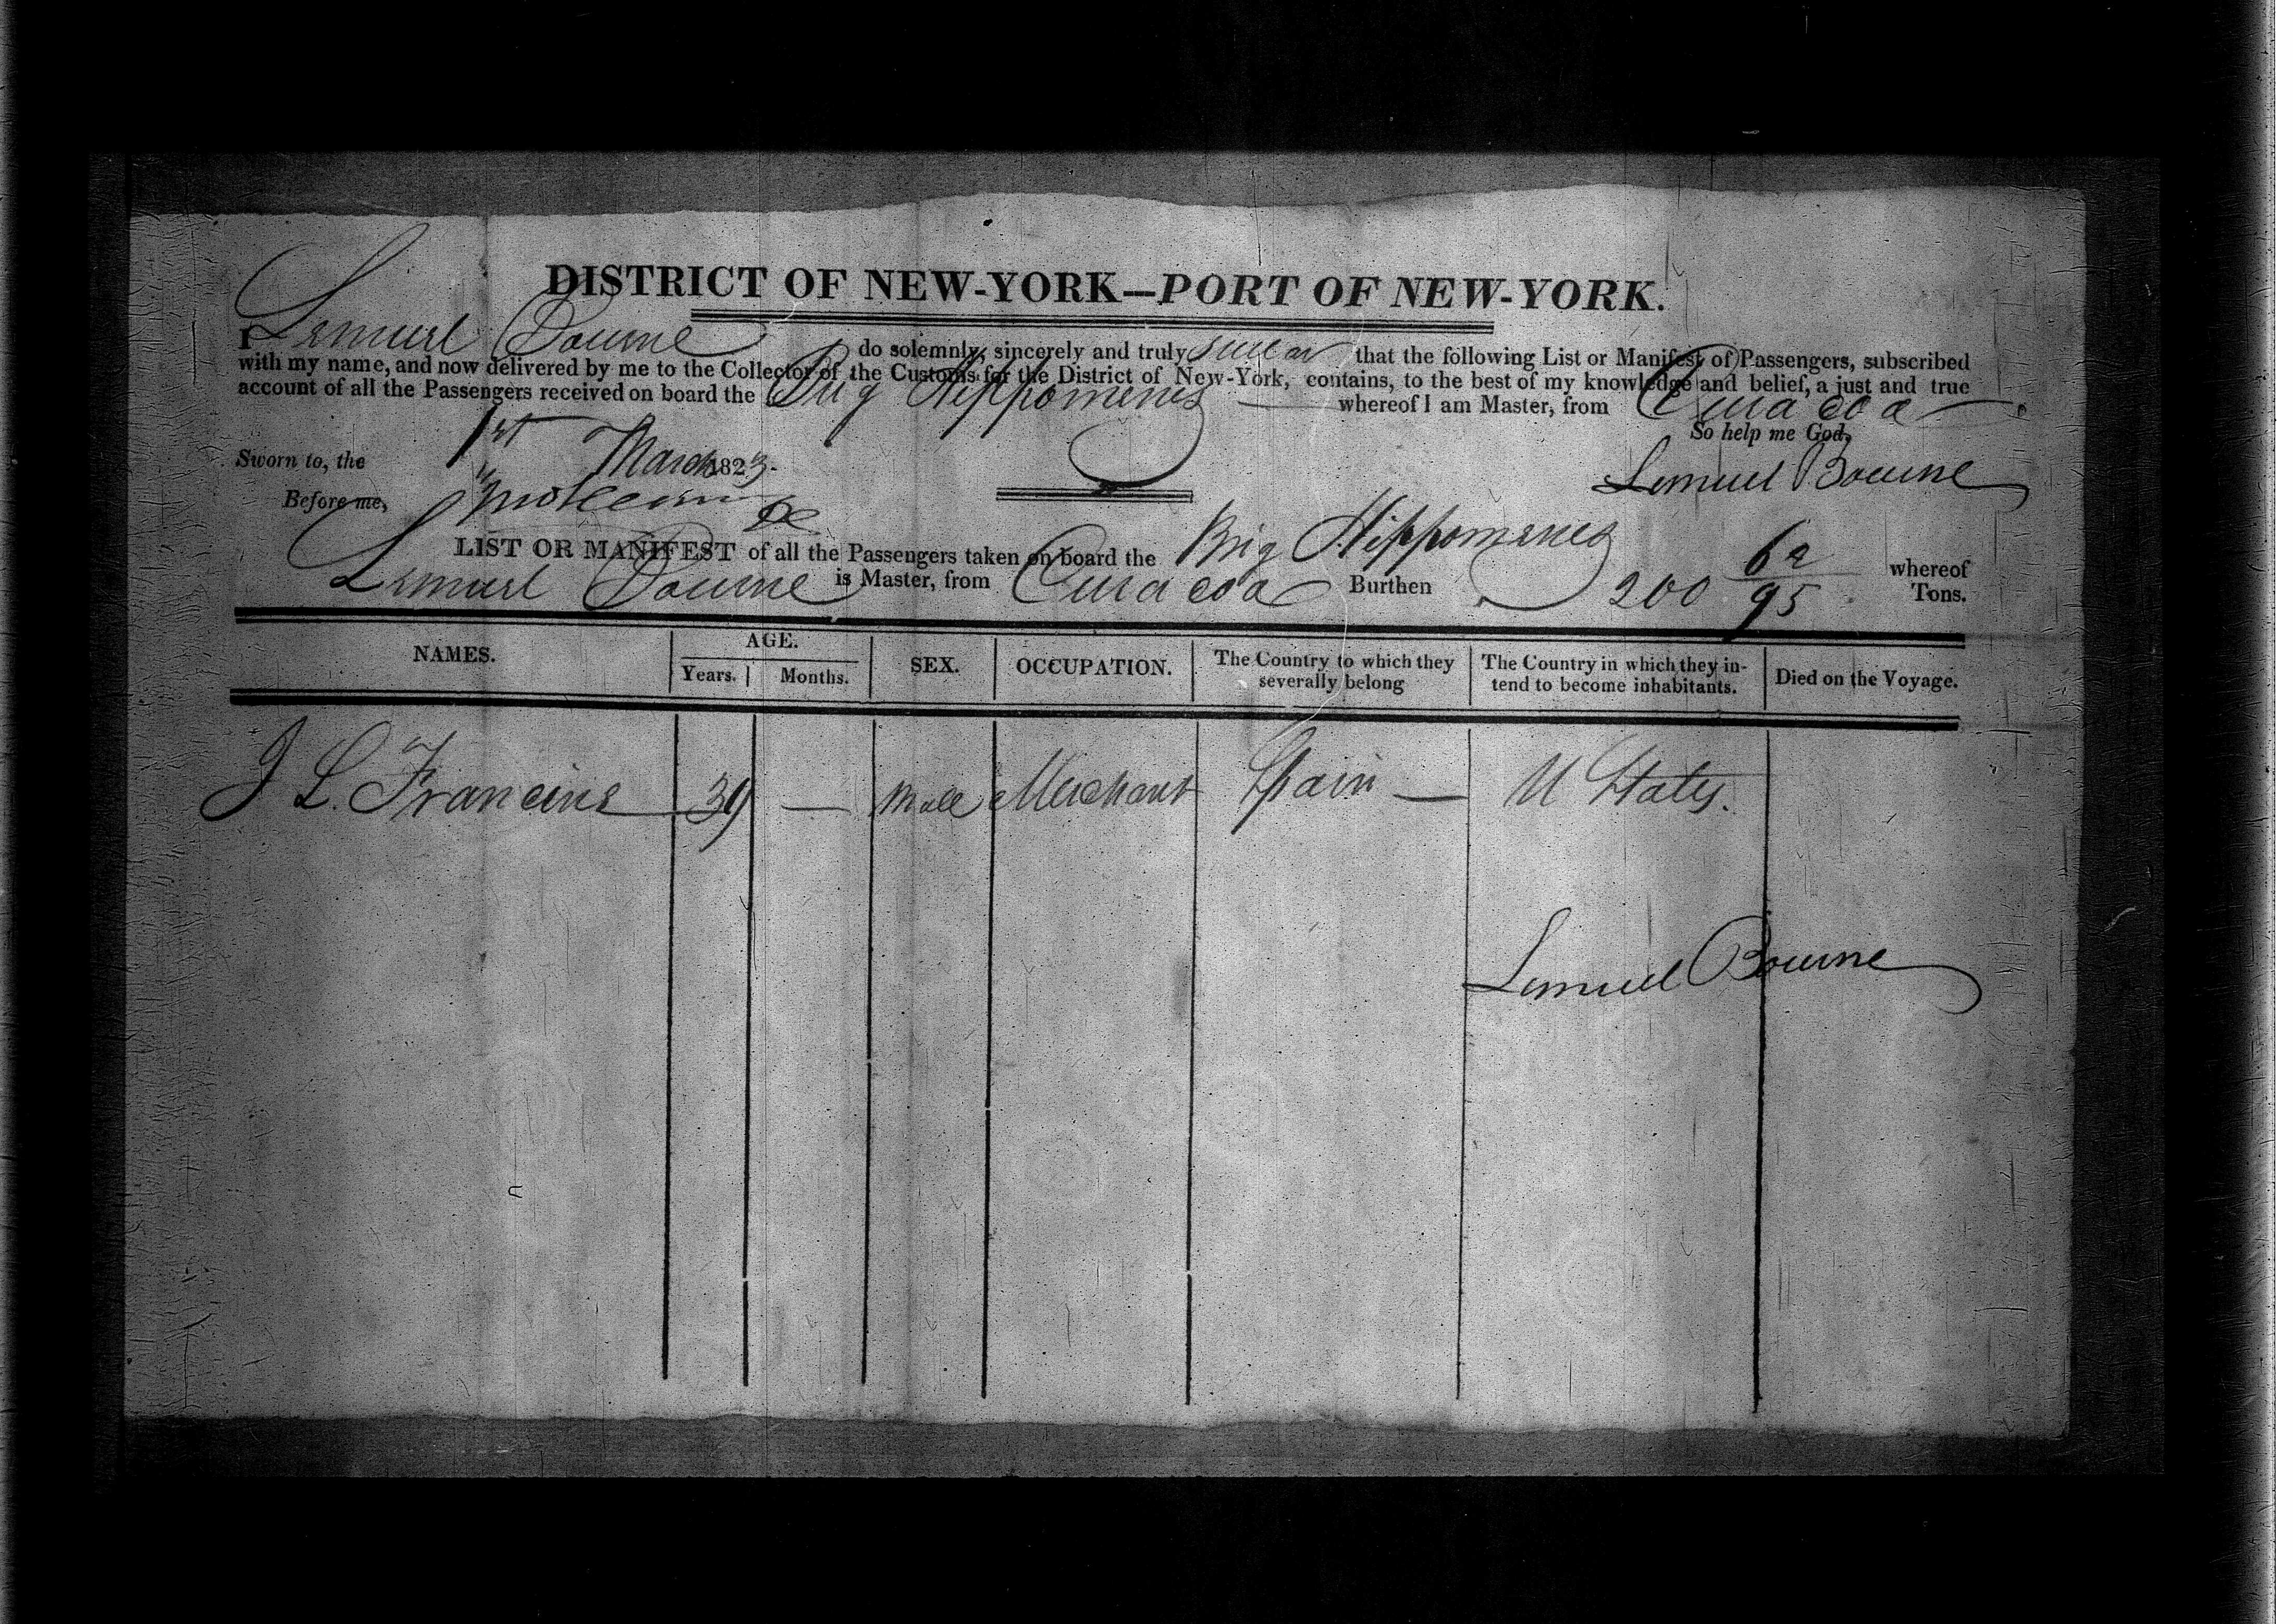 DISTRICT OF NEW-YORK—PORT OF NEW-YORK.
I Lemuel Bourne do solemnly, sincerely and truly swear that the following List or Manifest of Passengers, subscribed
with my name, and now delivered by me to the Collector of the Customs for the District of New-York, contains, to the best of my knowledge and belief, a just and true
account of all the Passengers received on board the Brig Hippomenes whereof I am Master, from Curacoa
So help me God,
Sworn to, the 1st March 1823.
Lemuel Bourne
Before me,
LIST OR MANIFEST of all the Passengers taken on board the Brig Hippomenes whereof
Lemuel Bourne is Master, from Curacoa Burthen 200 62/95 Tons.
NAMES. AGE. SEX. OCCUPATION. The Country to which they severally belong The Country in which they intend to become inhabitants. Died on the Voyage.
Years. Months.
J L. Francins 39 — Male Merchant Spain — U States.
Lemuel Bourne